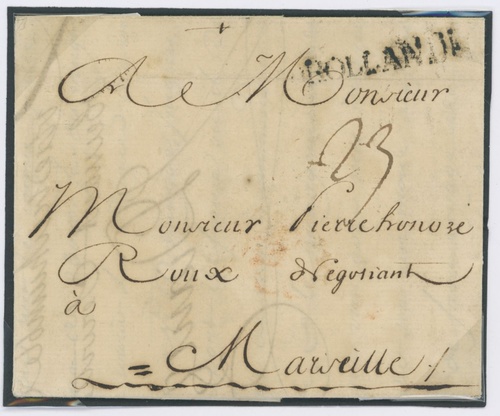 HOLLANDE
A Monsieur
23
Monsieur Pierre honoré
Roux Negotiant
à
= Marseille /